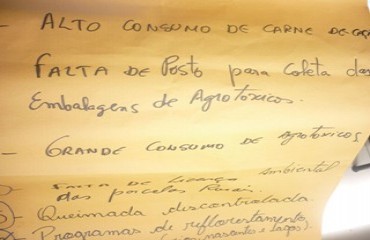 - ALTO CONSUMO DE CARNE DE CAÇA
FALTA DE Posto para Coleta das
Embalagens de Agrotóxicos.
- GRANDE CONSUMO DE AGROTÓXICOS
FALTA DE Licença Ambiental
das parcelas Rurais.
- Queimada descontrolada.
Programas de reflorestamento